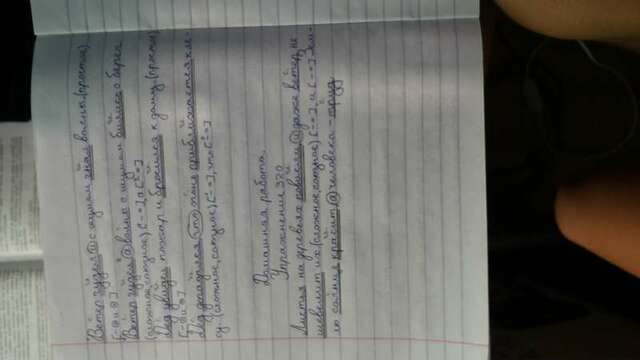 Ветер гудел и с шумом гнал волны.(простое)
[-=и=].
Ветер гудел, а волны с шумом бились о берег
(сложное,союзное) [-=], а [-=].
Дед увидел пожар и бросился к дому.(простое)
[-=и=].
Дед догадался, что огонь приближается к ле-
су. (сложное,союзное) [-=], что [-=].
Домашняя работа.
Упражнение 320
Листья на деревьях повисли и даже ветер не
шевелит их.(сложное,союзное) [-=], и [-=]. Зем-
лю солнце красит, а человека - труд